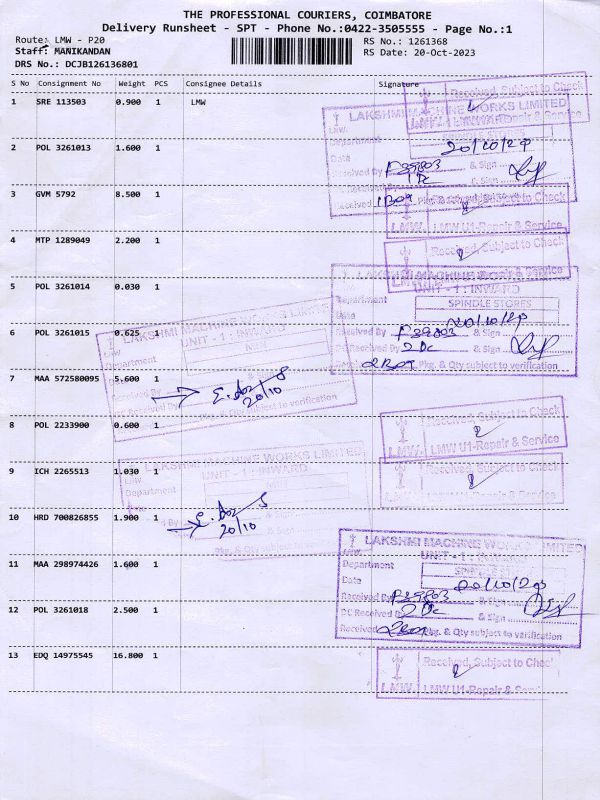 THE PROFESSIONAL COURIERS, COIMBATORE
Delivery Runsheet - SPT - Phone No.:0422-3505555 - Page No.:1
Route: LMW - P20
RS No.: 1261368
Staff: MANIKANDAN
RS Date: 20-Oct-2023
DRS No.: DCJB126136801
S No Consignment No Weight PCS Consignee Details Signature
1 SRE 113503 0.900 1 LMW
Received, Subject to Check
LAKSHMI MACHINE WORKS LIMITED
LMW U1-Repair & Service
Department
Date 20/10/23
2 POL 3261013 1.600 1
Received By & Sign
1 DC
3 GVM 5792 8.500 1
Received Pkg. & Qty subject to verification
Received, Subject to Check
LMW U1-Repair & Service
4 MTP 1289049 2.200 1
Received, Subject to Check
LAKSHMI MACHINE WORKS LIMITED
5 POL 3261014 0.030 1
UNIT - 1 : INWARD
Department SPINDLE STORES
Date 20/10/23
6 POL 3261015 0.625 1
LAKSHMI MACHINE WORKS LIMITED
UNIT - 1 : INWARD
Department
Received By & Sign
2 DC
Pkg. & Qty subject to verification
7 MAA 572580095 5.600 1
20/10
Pkg. & Qty subject to verification
8 POL 2233900 0.600 1
Received, Subject to Check
LMW LMW U1-Repair & Service
9 ICH 2265513 1.030 1
LAKSHMI MACHINE WORKS LIMITED
UNIT - 1 : INWARD
Department
Received, Subject to Check
LMW LMW U1-Repair & Service
10 HRD 700826855 1.900 1
20/10
Pkg. & Qty subject to verification
LAKSHMI MACHINE WORKS LIMITED
UNIT - 1 : INWARD
11 MAA 298974426 1.600 1
Department
Date 20/10/23
Received By & Sign
12 POL 3261018 2.500 1
DC Received By 2 DC & Sign
Received Pkg. & Qty subject to verification
13 EDQ 14975545 16.800 1
Received, Subject to Chec
LMW LMW U1-Repair & Serv